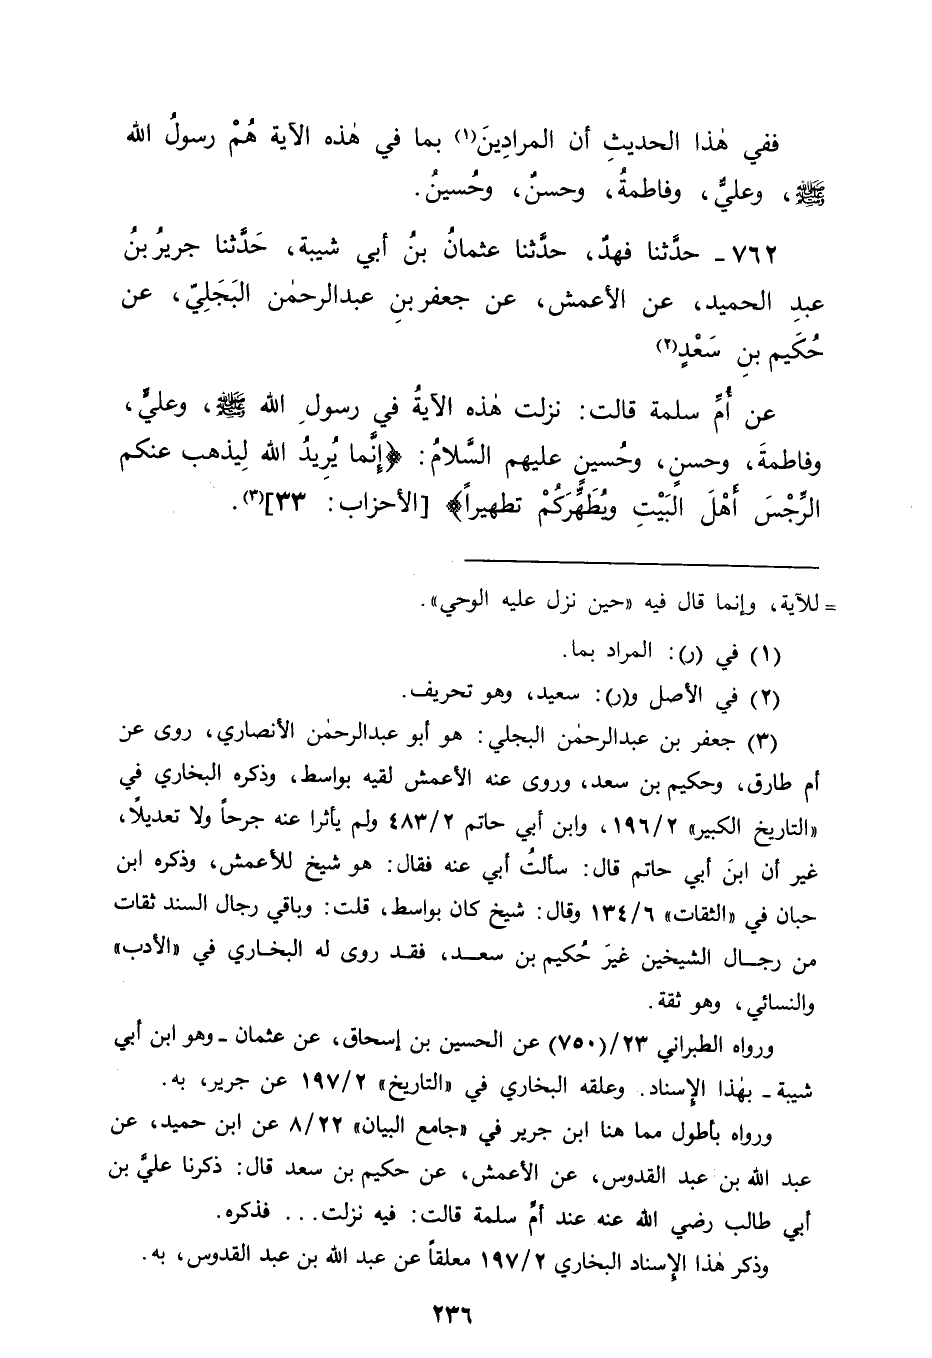 ففي هٰذا الحديثِ أن المرادِينَ(١) بما في هٰذه الآية هُمْ رسولُ الله
ﷺ، وعليٌّ، وفاطمةُ، وحسنٌ، وحُسينُ.
٧٦٢ـ حدَّثنا فهدٌ، حدَّثنا عثمانُ بنُ أبي شيبة، حَدَّثنا جريرُ بنُ
عبدِ الحميد، عن الأعمش، عن جعفر بنِ عبدالرحمٰن البَجَلِيّ، عن
حُكَيم بنِ سَعْدٍ(٢)
عن أُمِّ سلمة قالت: نزلت هٰذه الآيةُ في رسولِ الله ﷺ، وعليٍّ،
وفاطمةَ، وحسنٍ، وحُسينٍ عليهم السَّلامُ: ﴿إنَّما يُرِيدُ الله لِيذهب عنكم
الرِّجْسَ أَهْلَ البَيْتِ ويُطَهِّرَكُمْ تطهيراً﴾ [الأحزاب: ٣٣](٣).
= للآية، وإنما قال فيه «حين نزل عليه الوحي».
(١) في (ر): المراد بما.
(٢) في الأصل و(ر): سعيد، وهو تحريف.
(٣) جعفر بن عبدالرحمٰن البجلي: هو أبو عبدالرحمٰن الأنصاري، روى عن
أم طارق، وحكيم بن سعد، وروى عنه الأعمش لقيه بواسط، وذكره البخاري في
«التاريخ الكبير» ١٩٦/٢، وابن أبي حاتم ٤٨٣/٢ ولم يأثرا عنه جرحاً ولا تعديلاً،
غير أن ابنَ أبي حاتم قال: سألتُ أبي عنه فقال: هو شيخ للأعمش، وذكره ابن
حبان في «الثقات» ١٣٤/٦ وقال: شيخ كان بواسط، قلت: وباقي رجال السند ثقات
من رجال الشيخين غيرَ حُكيم بن سعد، فقد روى له البخاري في «الأدب»
والنسائي، وهو ثقة.
ورواه الطبراني ٢٣/(٧٥٠) عن الحسين بن إسحاق، عن عثمان ـ وهو ابن أبي
شيبة ـ بهٰذا الإسناد. وعلقه البخاري في «التاريخ» ١٩٧/٢ عن جرير، به.
ورواه بأطول مما هنا ابن جرير في «جامع البيان» ٨/٢٢ عن ابن حميد، عن
عبد الله بن عبد القدوس، عن الأعمش، عن حكيم بن سعد قال: ذكرنا عليَّ بن
أبي طالب رضي الله عنه عند أمِّ سلمة قالت: فيه نزلت... فذكره.
وذكر هٰذا الإسناد البخاري ١٩٧/٢ معلقاً عن عبد الله بن عبد القدوس، به.
٢٣٦